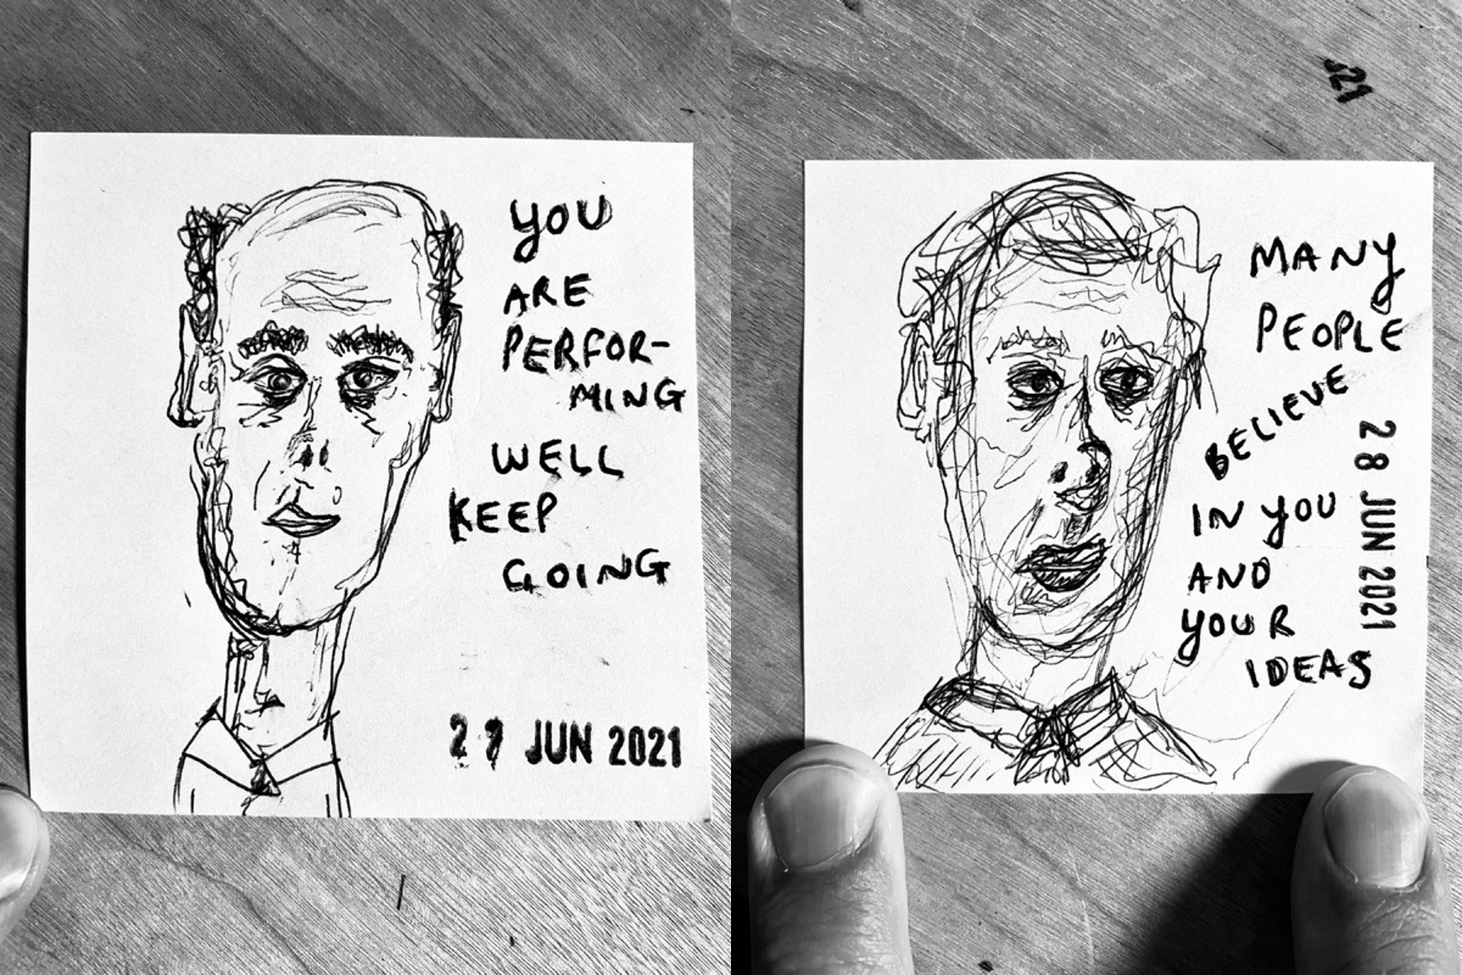 YOU
ARE
PERFOR-
MING
WELL
KEEP
GOING
27 JUN 2021
21
MANY
PEOPLE
BELIEVE
IN YOU
AND
YOUR
IDEAS
28 JUN 2021